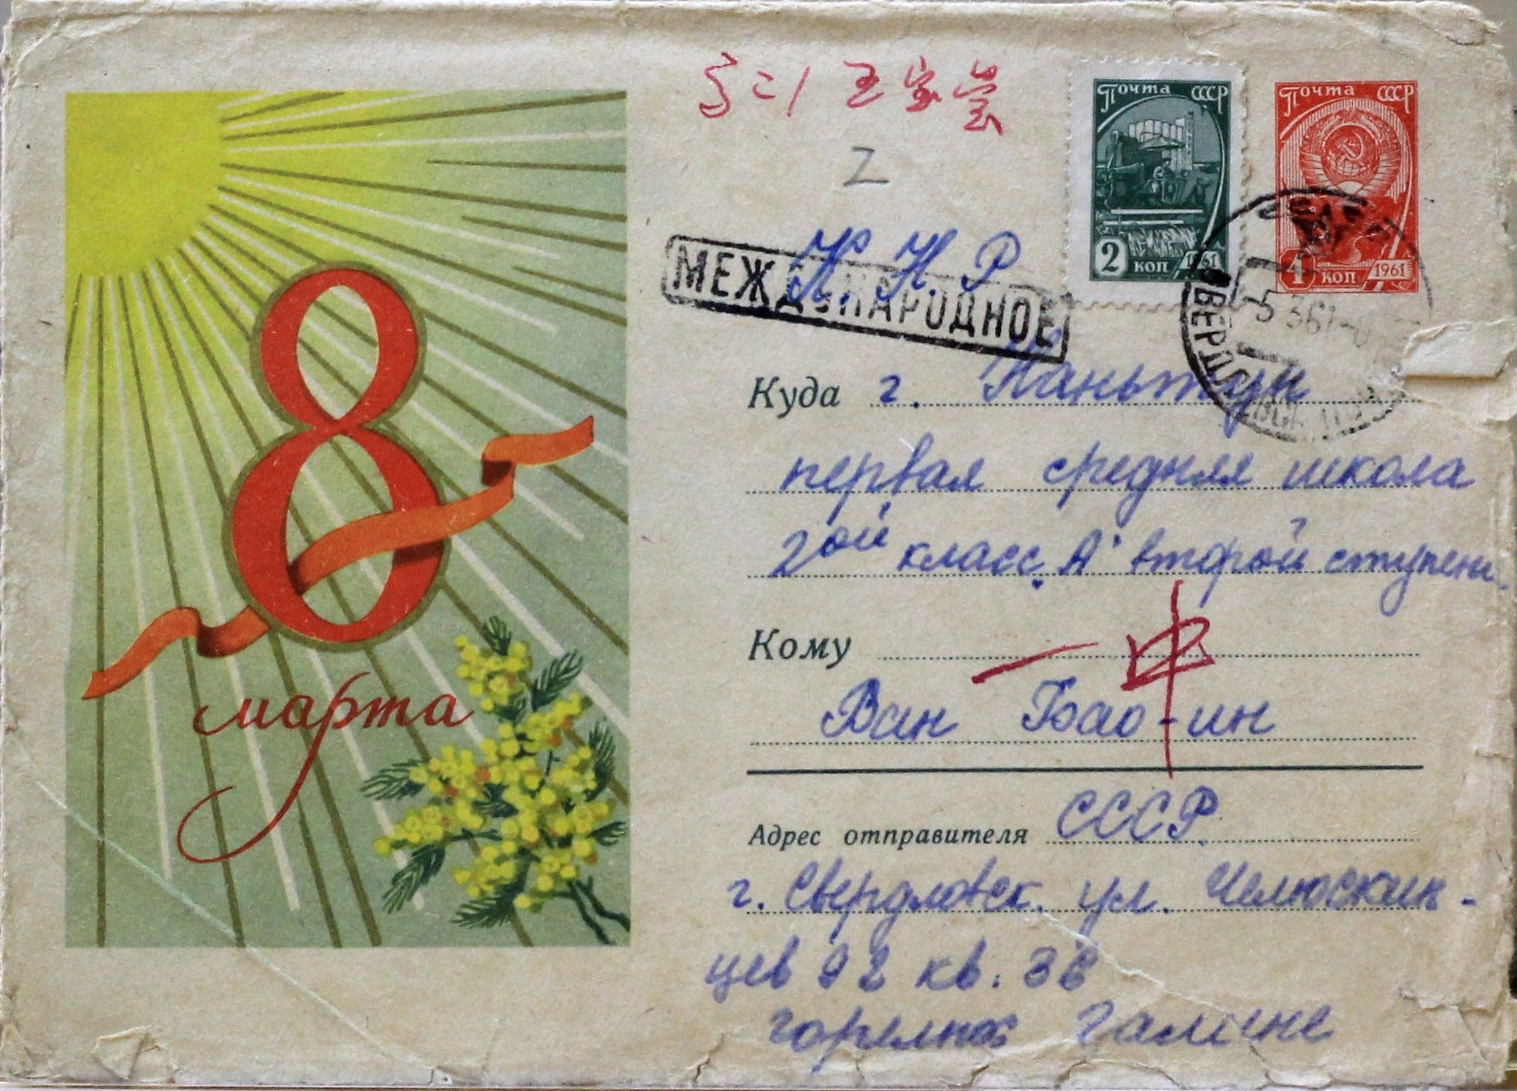 8
марта
高二1 王家莹
Z
Почта СССР
2 коп 1961
Почта СССР
4 коп 1961
К. Н. Р
МЕЖДУНАРОДНОЕ
-5 3 61
Куда г. Наньтун
первая средняя школа
2ой класс „А" второй ступени
Кому
一中
Ван Бао-ин
Адрес отправителя СССР
г. Свердловск. ул. Челюскин-
цев 92 кв. 38
Галине